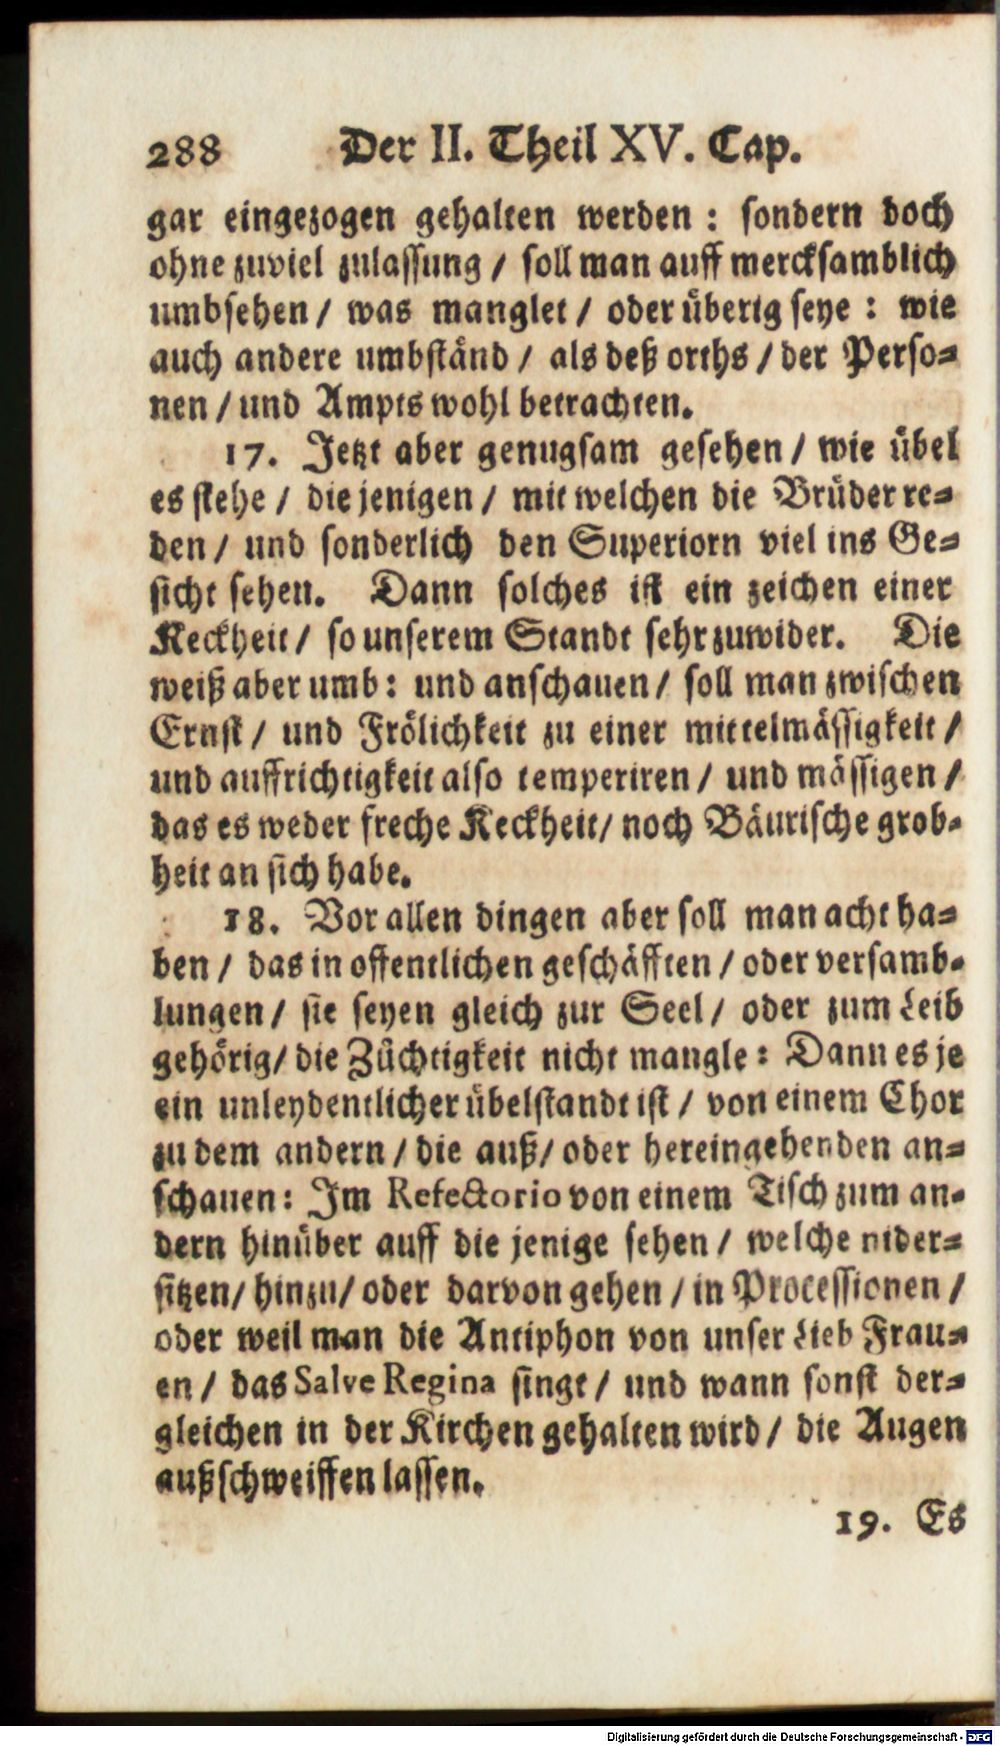 288 Der II. Theil XV. Cap.
gar eingezogen gehalten werden : sondern doch
ohne zuviel zulassung / soll man auff mercksamblich
umbsehen / was manglet / oder überig seye : wie
auch andere umbständ / als deß orths / der Perso-
nen / und Ampts wohl betrachten.
17. Jetzt aber genugsam gesehen / wie übel
es stehe / die jenigen / mit welchen die Brüder re-
den / und sonderlich den Superiorn viel ins Ge-
sicht sehen. Dann solches ist ein zeichen einer
Keckheit / so unserem Standt sehr zuwider. Die
weiß aber umb: und anschauen / soll man zwischen
Ernst / und Frölichkeit zu einer mittelmässigkeit /
und auffrichtigkeit also temperiren / und mässigen /
das es weder freche Keckheit / noch Bäurische grob-
heit an sich habe.
18. Vor allen dingen aber soll man acht ha-
ben / das in offentlichen geschäfften / oder versamb-
lungen / sie seyen gleich zur Seel / oder zum Leib
gehörig / die Züchtigkeit nicht mangle : Dann es je
ein unleydentlicher übelstandt ist / von einem Chor
zu dem andern / die auß / oder hereingehenden an-
schauen: Im Refectorio von einem Tisch zum an-
dern hinüber auff die jenige sehen / welche nider-
sitzen / hinzu / oder darvon gehen / in Processionen /
oder weil man die Antiphon von unser Lieb Frau-
en / das Salve Regina singt / und wann sonst der-
gleichen in der Kirchen gehalten wird / die Augen
außschweiffen lassen.
19. Es
Digitalisierung gefördert durch die Deutsche Forschungsgemeinschaft - DFG